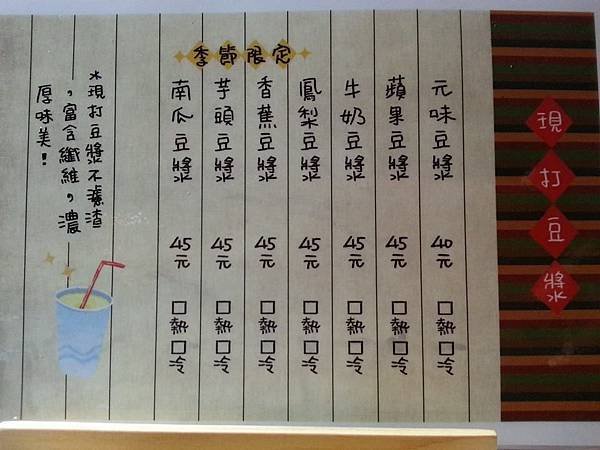 現打豆漿
元味豆漿 40元 □熱□冷
蘋果豆漿 45元 □熱□冷
牛奶豆漿 45元 □熱□冷
季節限定
鳳梨豆漿 45元 □熱□冷
香蕉豆漿 45元 □熱□冷
芋頭豆漿 45元 □熱□冷
南瓜豆漿 45元 □熱□冷
*現打豆漿不濾渣
，富含纖維，濃
厚味美！